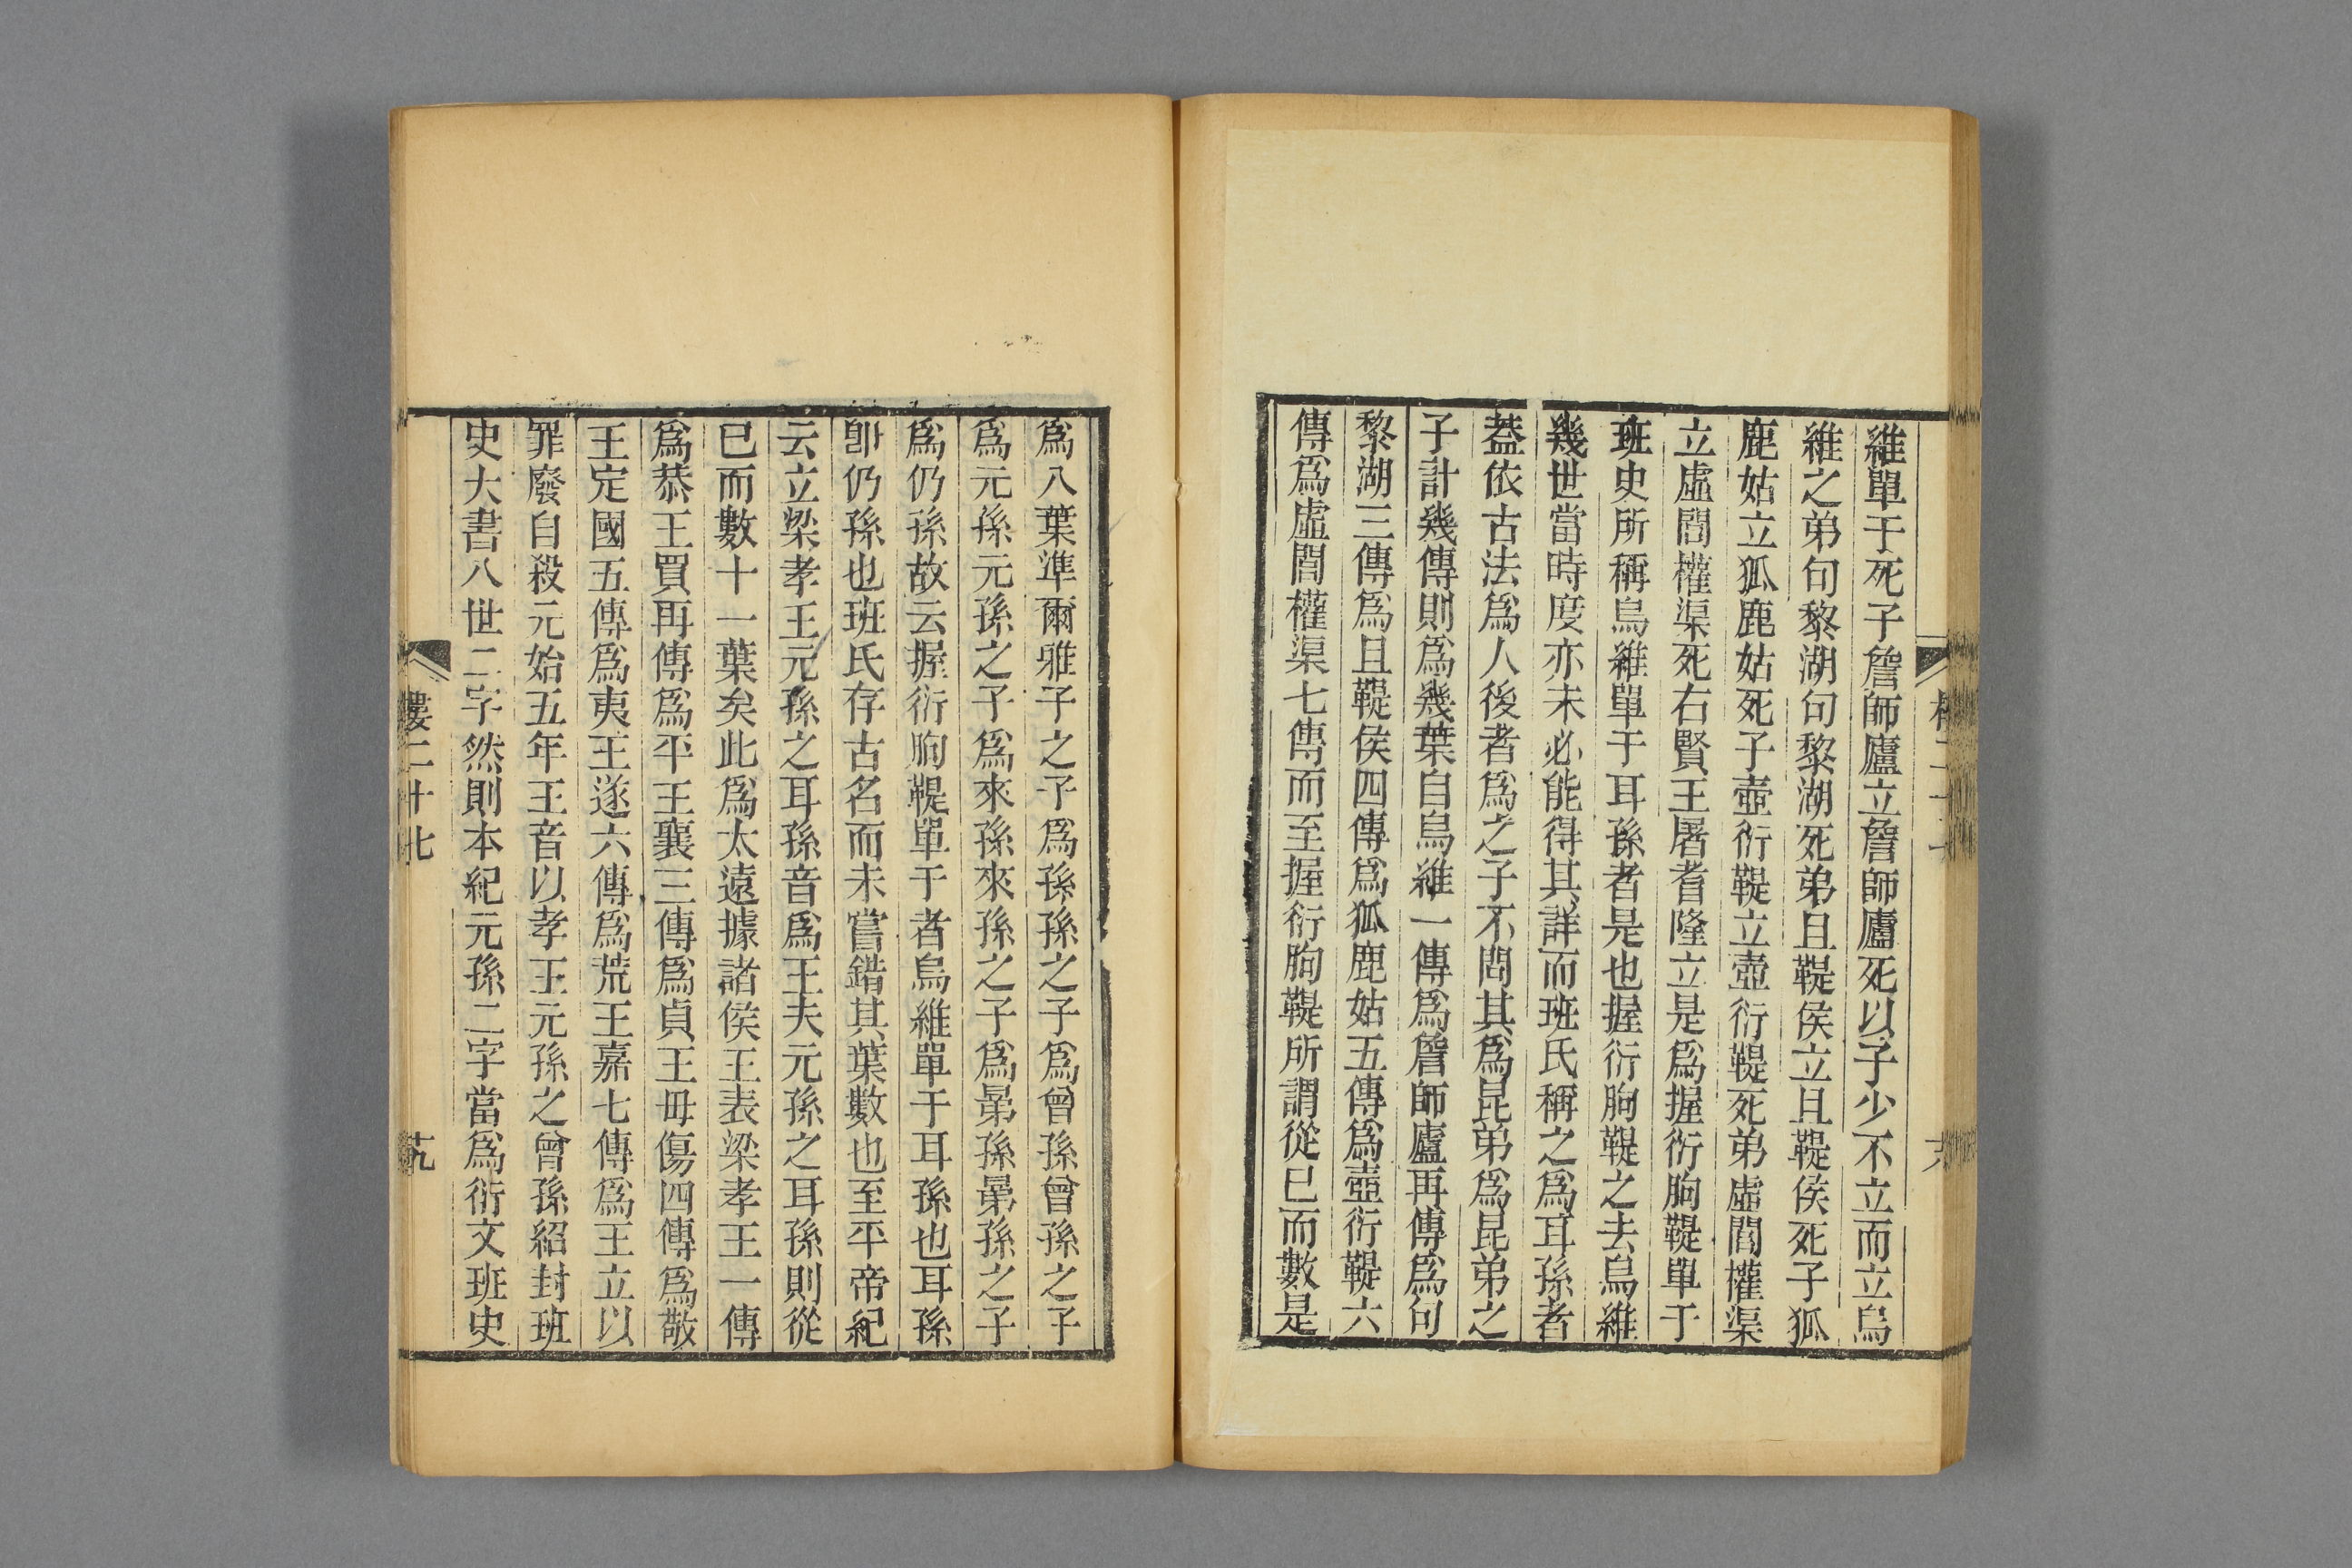 維單于死子詹師廬立詹師廬死以子少不立而立烏
維之弟句黎湖句黎湖死弟且鞮侯立且鞮侯死子狐
鹿姑立狐鹿姑死子壺衍鞮立壺衍鞮死弟虛閭權渠
立虛閭權渠死右賢王屠耆隆立是爲握衍朐鞮單于
班史所稱烏維單于耳孫者是也握衍朐鞮之去烏維
幾世當時度亦未必能得其詳而班氏稱之爲耳孫者
葢依古法爲人後者爲之子不問其爲昆弟爲昆弟之
子計幾傳則爲幾葉自烏維一傳爲詹師廬再傳爲句
黎湖三傳爲且鞮侯四傳爲狐鹿姑五傳爲壺衍鞮六
傳爲虛閭權渠七傳而至握衍朐鞮所謂從已而數是
爲八葉準爾雅子之子爲孫孫之子爲曾孫曾孫之子
爲元孫元孫之子爲來孫來孫之子爲晜孫晜孫之子
爲仍孫故云握衍朐鞮單于者烏維單于耳孫也耳孫
卽仍孫也班氏存古名而未嘗錯其葉數也至平帝紀
云立梁孝王元孫之耳孫音爲王夫元孫之耳孫則從
已而數十一葉矣此爲太遠據諸侯王表梁孝王一傳
爲恭王買再傳爲平王襄三傳爲貞王毋傷四傳爲敬
王定國五傳爲夷王遂六傳爲荒王嘉七傳爲王立以
罪廢自殺元始五年王音以孝王元孫之曾孫紹封班
史大書八世二字然則本紀元孫二字當爲衍文班史